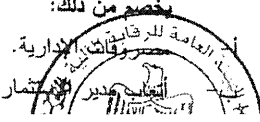 يخصم من ذلك:
أ- مصروفات الإدارية.
ب- أتعاب مدير الاستثمار
العامة للرقابة